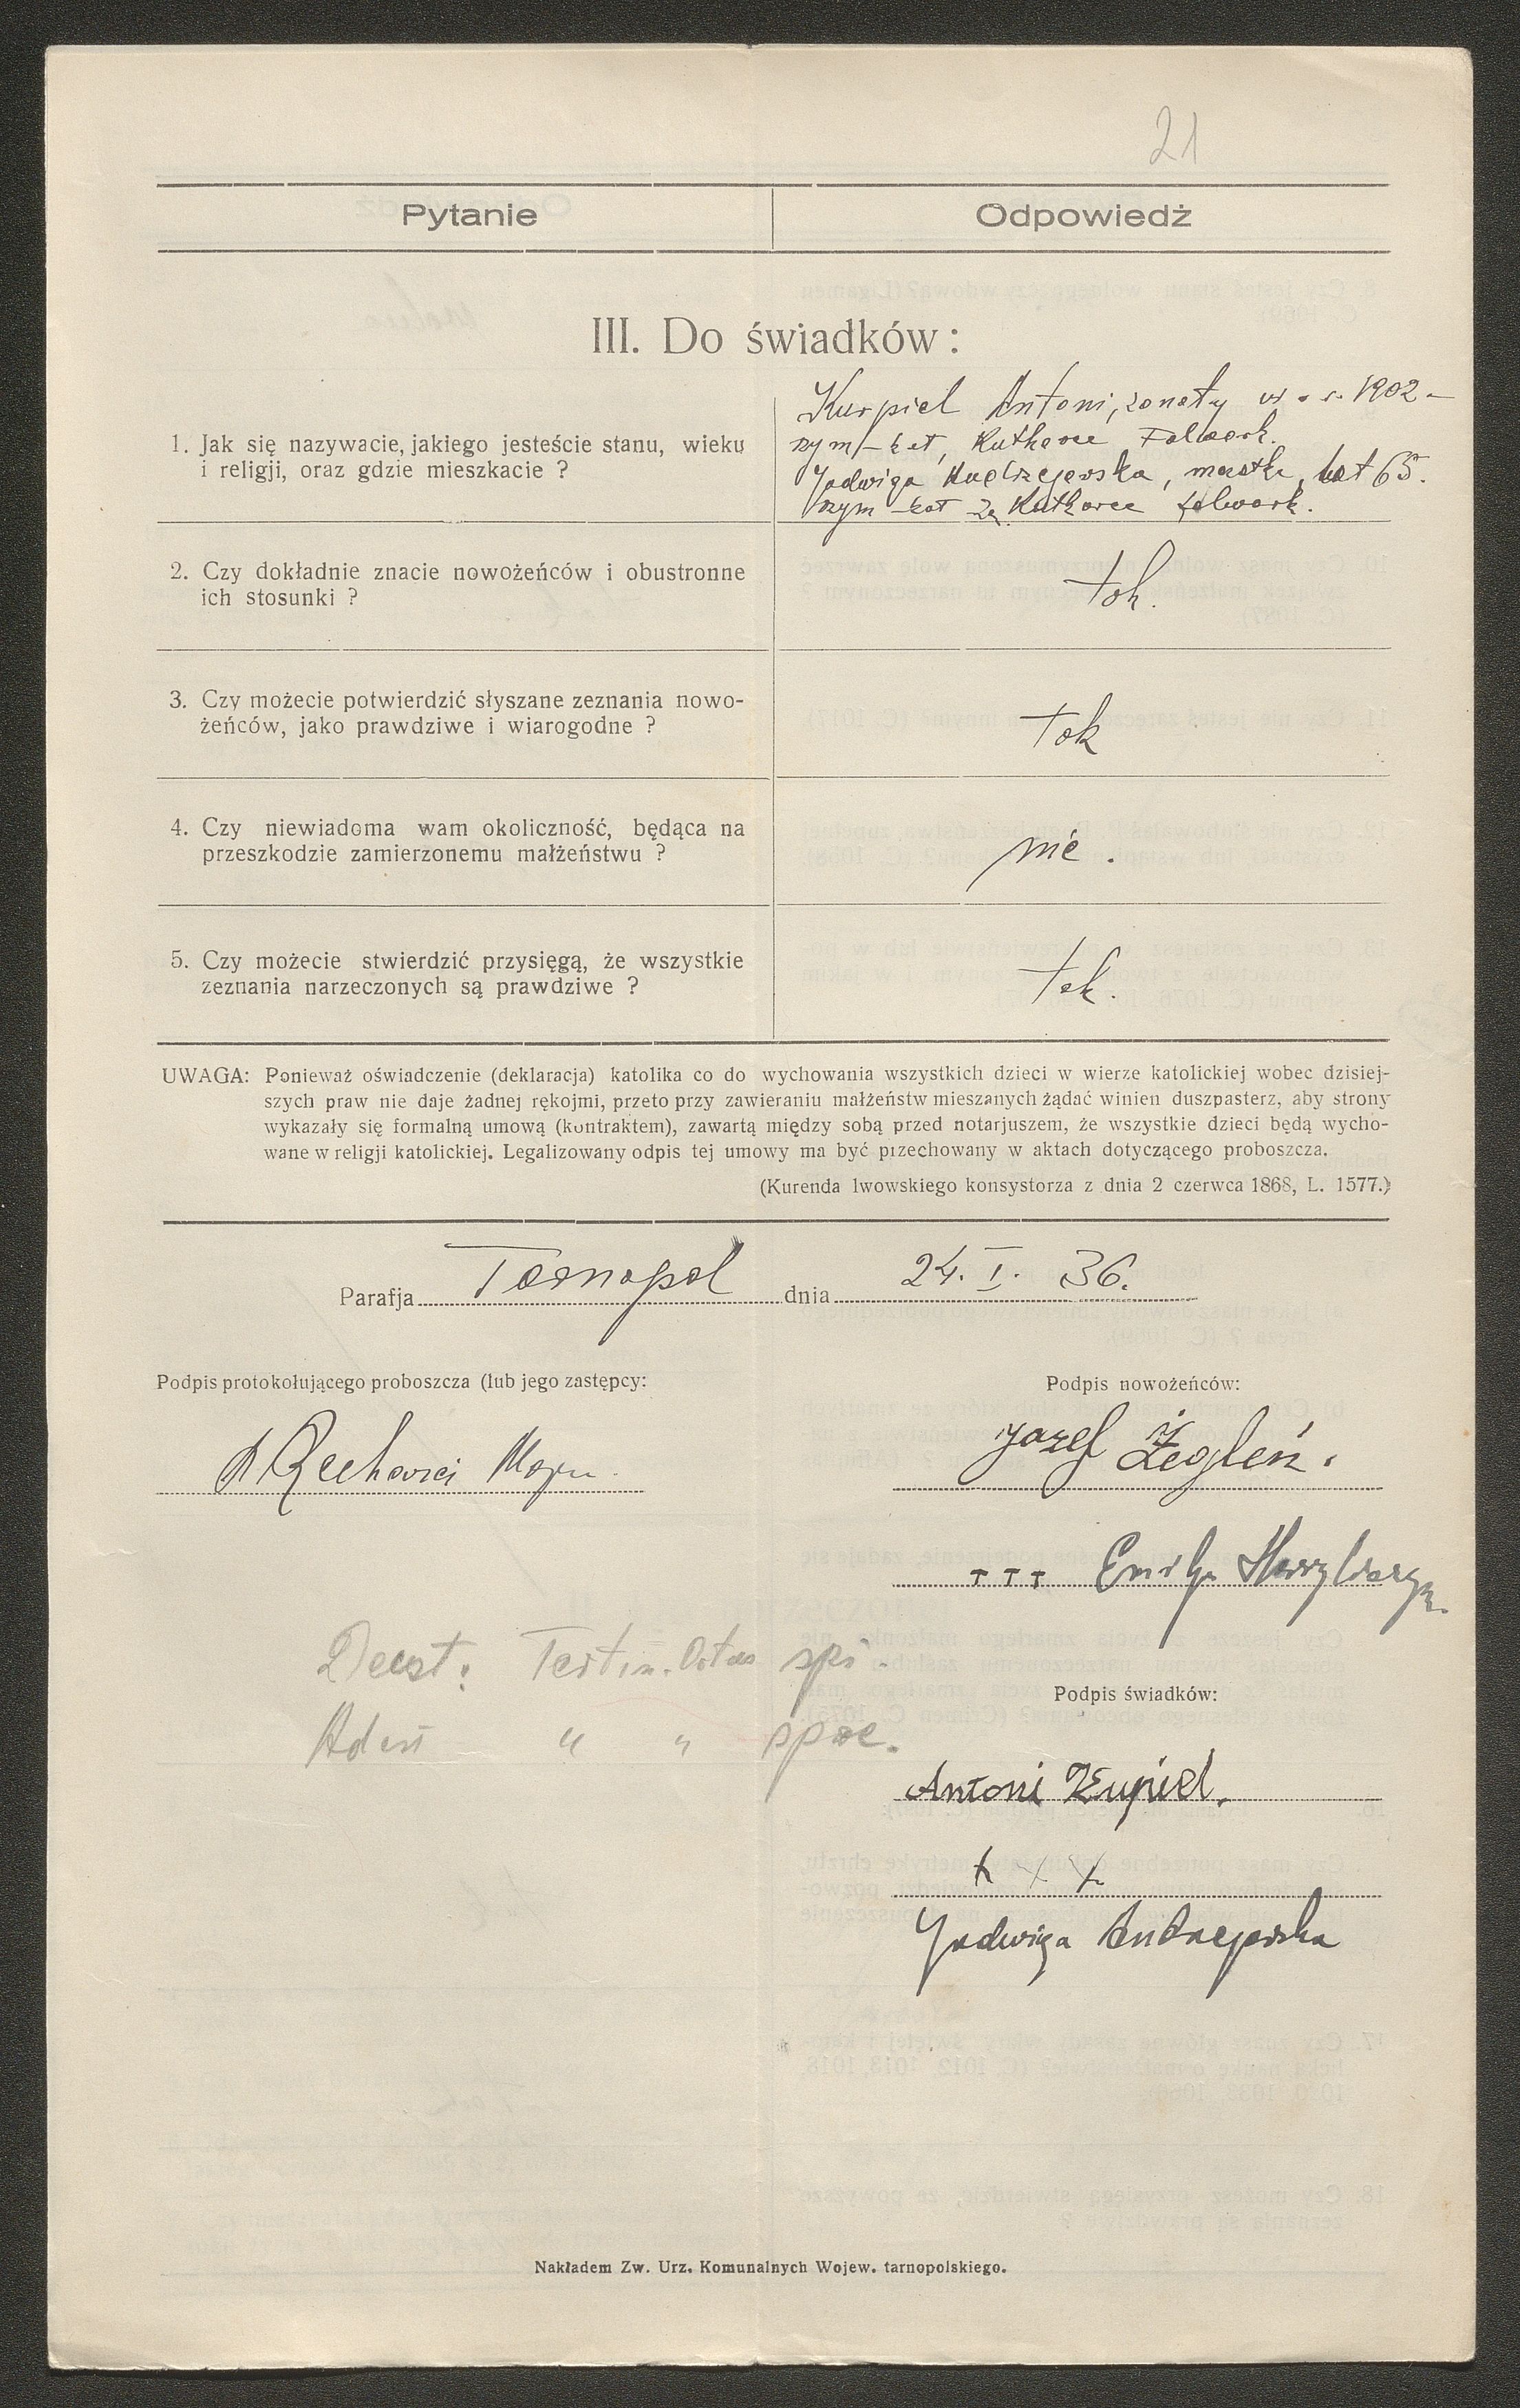 21
Pytanie
Odpowiedż
III. Do świadków:
1. Jak się nazywacie, jakiego jesteście stanu, wieku
i religji, oraz gdzie mieszkacie ?
Kurpiel Antoni, żonaty ur. r. 1902 -
rzym-kat, Kutkowce Folwark.
Jadwiga Andrzejewska, mężatka, lat 65.
rzym-kat Kutkowce folwark.
2. Czy dokładnie znacie nowożeńców i obustronne
ich stosunki ?
tak.
3. Czy możecie potwierdzić słyszane zeznania nowo-
żeńców, jako prawdziwe i wiarogodne ?
tak
4. Czy niewiadoma wam okoliczność, będąca na
przeszkodzie zamierzonemu małżeństwu ?
nie.
5. Czy możecie stwierdzić przysięgą, że wszystkie
zeznania narzeczonych są prawdziwe ?
tak.
UWAGA: Ponieważ oświadczenie (deklaracja) katolika co do wychowania wszystkich dzieci w wierze katolickiej wobec dzisiej-
szych praw nie daje żadnej rękojmi, przeto przy zawieraniu małżeństw mieszanych żądać winien duszpasterz, aby strony
wykazały się formalną umową (kontraktem), zawartą między sobą przed notarjuszem, że wszystkie dzieci będą wycho-
wane w religji katolickiej. Legalizowany odpis tej umowy ma być przechowany w aktach dotyczącego proboszcza.
(Kurenda lwowskiego konsystorza z dnia 2 czerwca 1868, L. 1577.)
Parafja Tarnopol dnia 24. I. 36.
Podpis protokołującego proboszcza (lub jego zastępcy:
Podpis nowożeńców:
Józef Żegleń.
+ + + Emilja
Deest: Testim. Ortus spi.
Adest " " spae.
Podpis świadków:
Antoni Kupiel.
+ + +
Jadwiga Andrzejewska
Nakładem Zw. Urz. Komunalnych Wojew. tarnopolskiego.